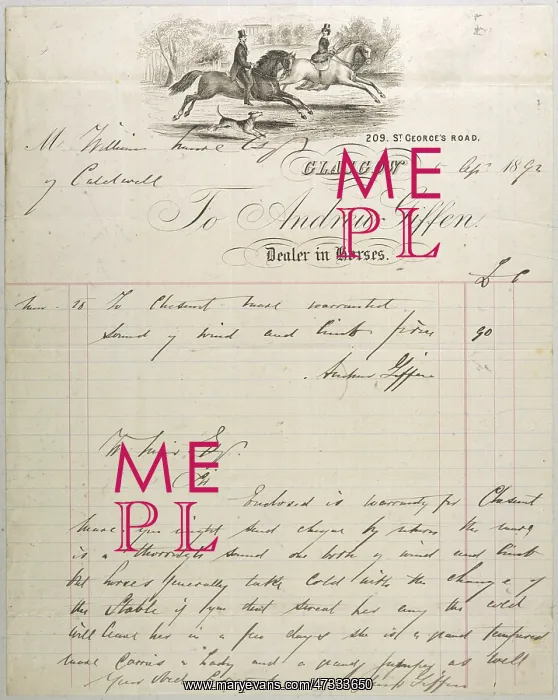 209, ST GEORGE'S ROAD,
Mr William Esq
GLASGOW Apr 1892
of Caldwell
To Andrew Giffen.
Dealer in Horses.
£ s
28 To Chesnut mare warranted
Sound of wind and limb price 90
Andrew Giffen
W Muir Esq.
Sir
Enclosed is warranty for Chesnut
mare you might send cheque by return the mare
is a thoroughly sound one both of wind and limb
but horses generally take Cold with the change of
the Stable if you dont sweat her any the cold
will leave her in a few days she is a grand tempered
mare Carries a Lady and a grand jumper as well
Giffen
ME
PL
ME
PL
www.maryevans.com/47333650